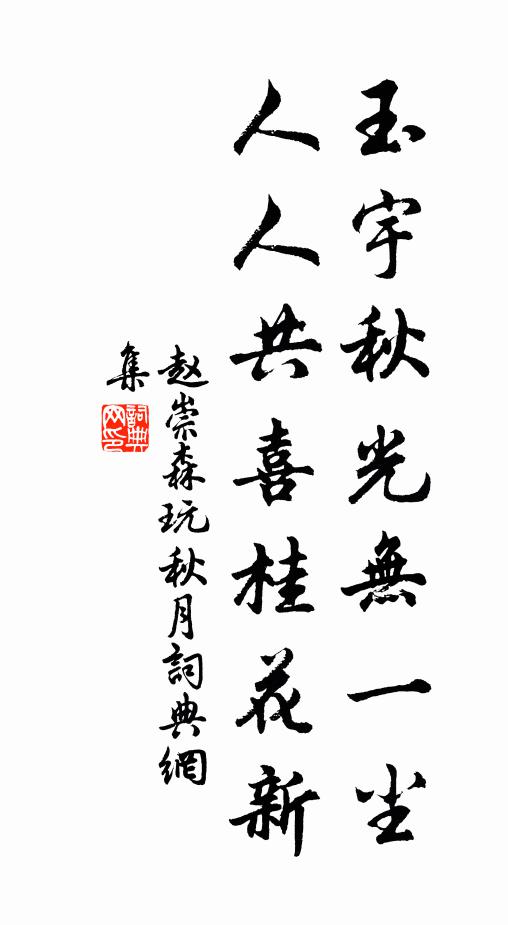 玉宇秋光無一尘
人人共喜桂花新
赵崇森玩秋月詞典網
集
詞典网印